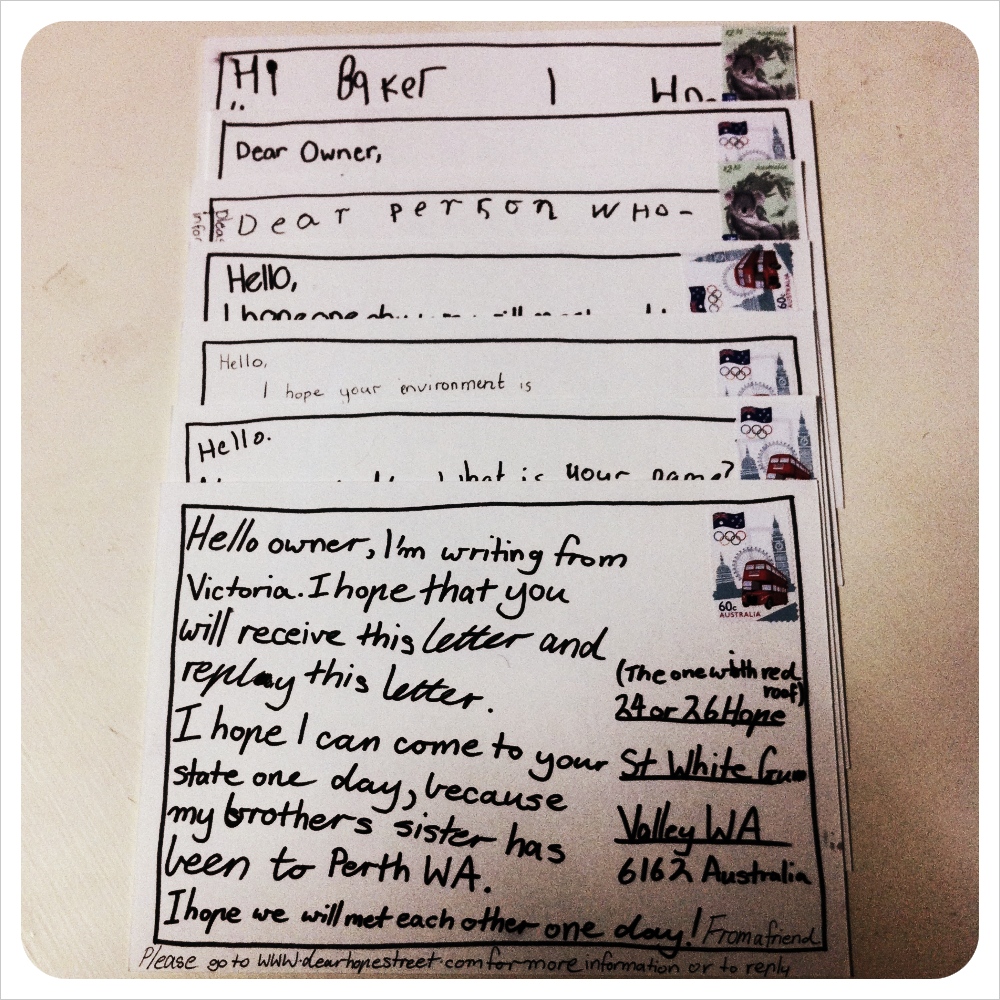 Hi Baker I
Dear Owner,
Dear person who-
Hello,
I hope one
Hello,
I hope your environment is
Hello.
What is your name?
Hello owner, I'm writing from
Victoria. I hope that you
will receive this letter and
replay this letter.
I hope I can come to your
state one day, because
my brothers sister has
been to Perth WA.
I hope we will met each other one day! From a friend
60c
AUSTRALIA
(The one with red
roof)
24 or 26 Hope
St White Gum
Valley WA
6162 Australia
Please go to www.dearhopestreet.com for more information or to reply